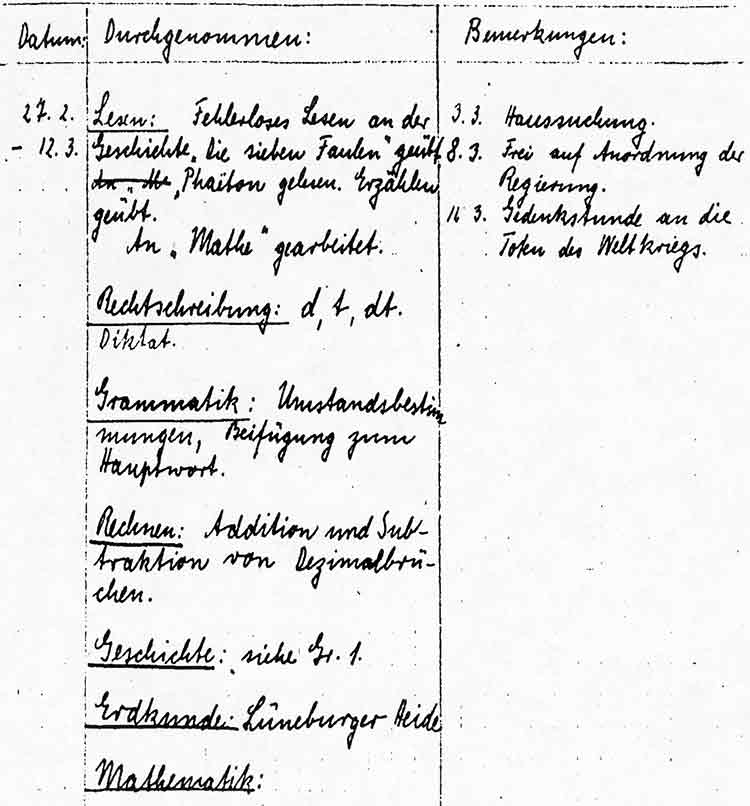 Datum: Durchgenommen: Bemerkungen:
27.2. Lesen: Fehlerloses Lesen an der
- 12.3. Geschichte „Die sieben Faulen" geübt,
An „Me „Phaëton gelesen. Erzählen
geübt.
An „Mathe" gearbeitet.
Rechtschreibung: d, t, dt.
Diktat.
Grammatik: Umstandsbestim
mungen, Beifügung zum
Hauptwort.
Rechnen: Addition und Sub-
traktion von Dezimalbrü-
chen.
Geschichte: siehe Gr. 1.
Erdkunde: Lüneburger Heide
Mathematik:
3.3. Haussuchung.
8.3. Frei auf Anordnung der
Regierung.
3. Gedenkstunde an die
Toten des Weltkriegs.